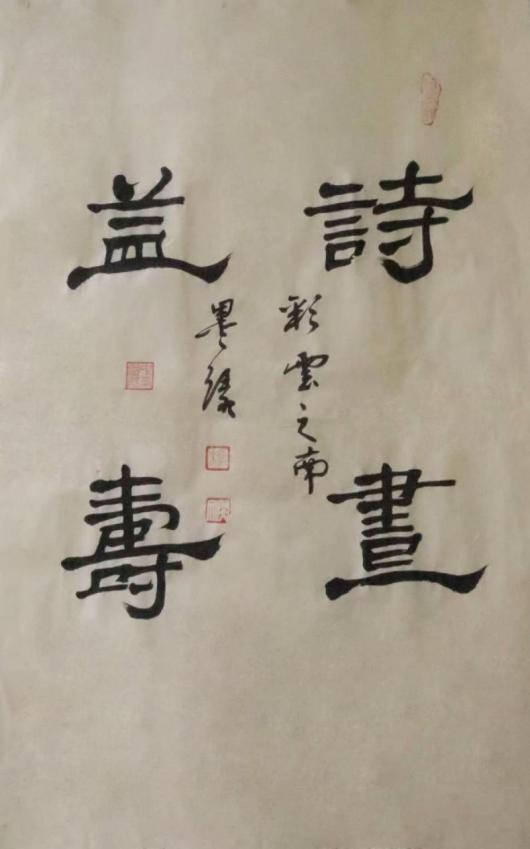 詩畫
益壽
彩雲之南
墨緣